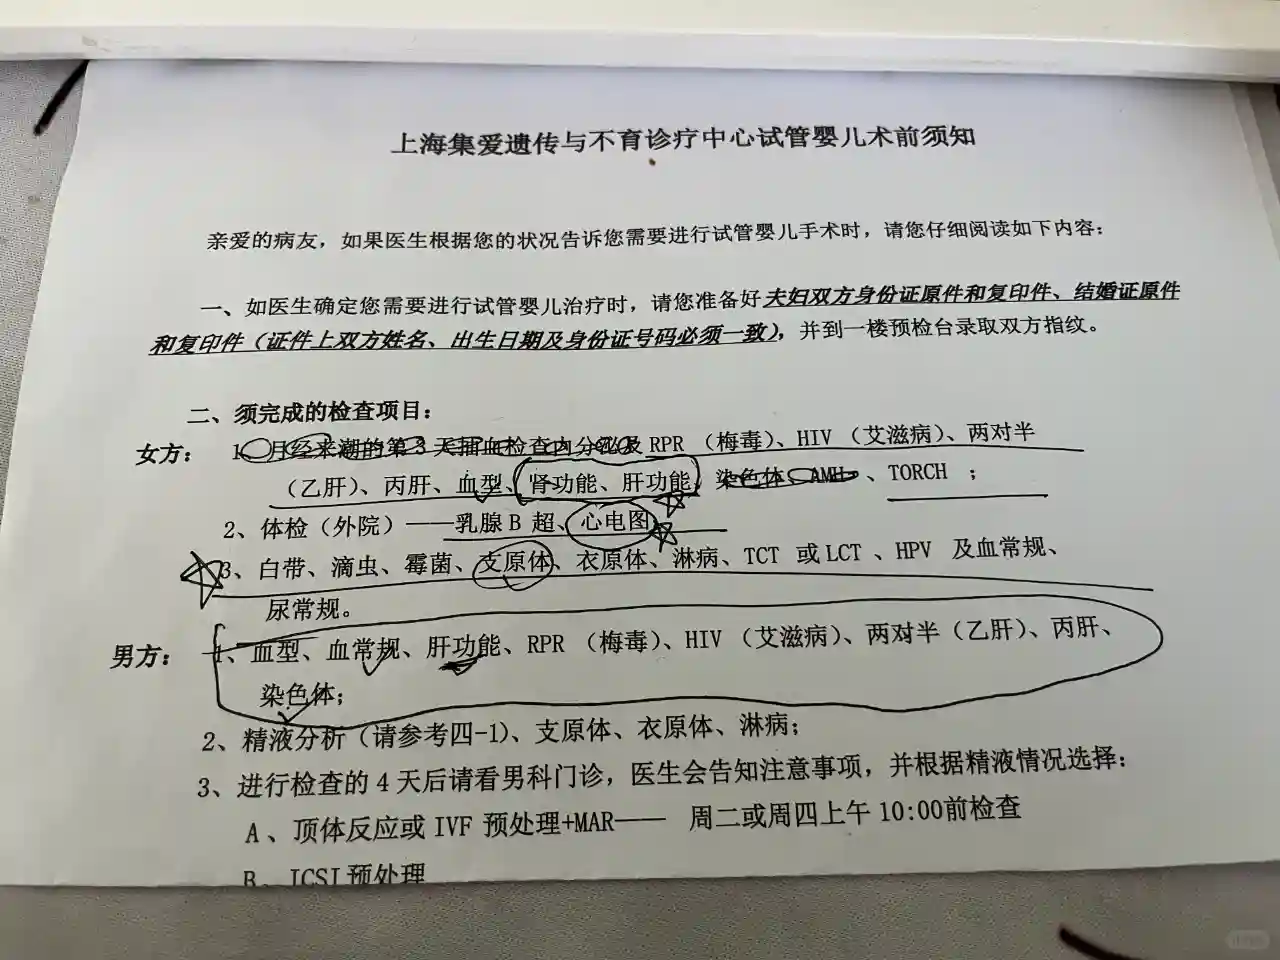 上海集爱遗传与不育诊疗中心试管婴儿术前须知
亲爱的病友，如果医生根据您的状况告诉您需要进行试管婴儿手术时，请您仔细阅读如下内容：
一、如医生确定您需要进行试管婴儿治疗时，请您准备好夫妇双方身份证原件和复印件、结婚证原件
和复印件（证件上双方姓名、出生日期及身份证号码必须一致），并到一楼预检台录取双方指纹。
二、须完成的检查项目：
女方： 1、月经来潮的第 3 天抽血检查内分泌及 RPR （梅毒）、HIV （艾滋病）、两对半
（乙肝）、丙肝、血型、肾功能、肝功能、染色体、AMH 、TORCH ；
2、体检（外院）——乳腺 B 超、心电图
3、白带、滴虫、霉菌、支原体、衣原体、淋病、TCT 或 LCT 、HPV 及血常规、
尿常规。
男方： 1、血型、血常规、肝功能、RPR （梅毒）、HIV （艾滋病）、两对半（乙肝）、丙肝、
染色体；
2、精液分析（请参考四-1）、支原体、衣原体、淋病；
3、进行检查的 4 天后请看男科门诊，医生会告知注意事项，并根据精液情况选择：
A 、顶体反应或 IVF 预处理+MAR—— 周二或周四上午 10:00前检查
B、 ICSI 预处理